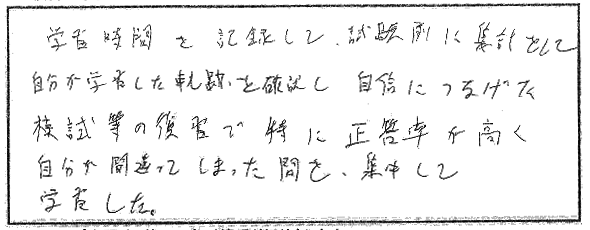 学習時間を記録して、試験別に集計をして
自分が学習した軌跡を確認し 自信につなげた
模試等の復習で特に正答率が高く
自分が間違ってしまった問を、集中して
学習した。